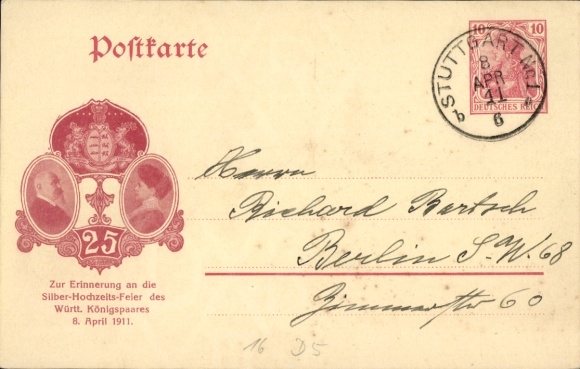 Postkarte
10 10
DEUTSCHES REICH
STUTTGART No. 1
8
APR
11
b 6 a
25
Zur Erinnerung an die
Silber-Hochzeits-Feier des
Württ. Königspaares
8. April 1911.
Herrn
Richard Bartsch
Berlin S.W. 68
Zimmerstr 60
16 D5